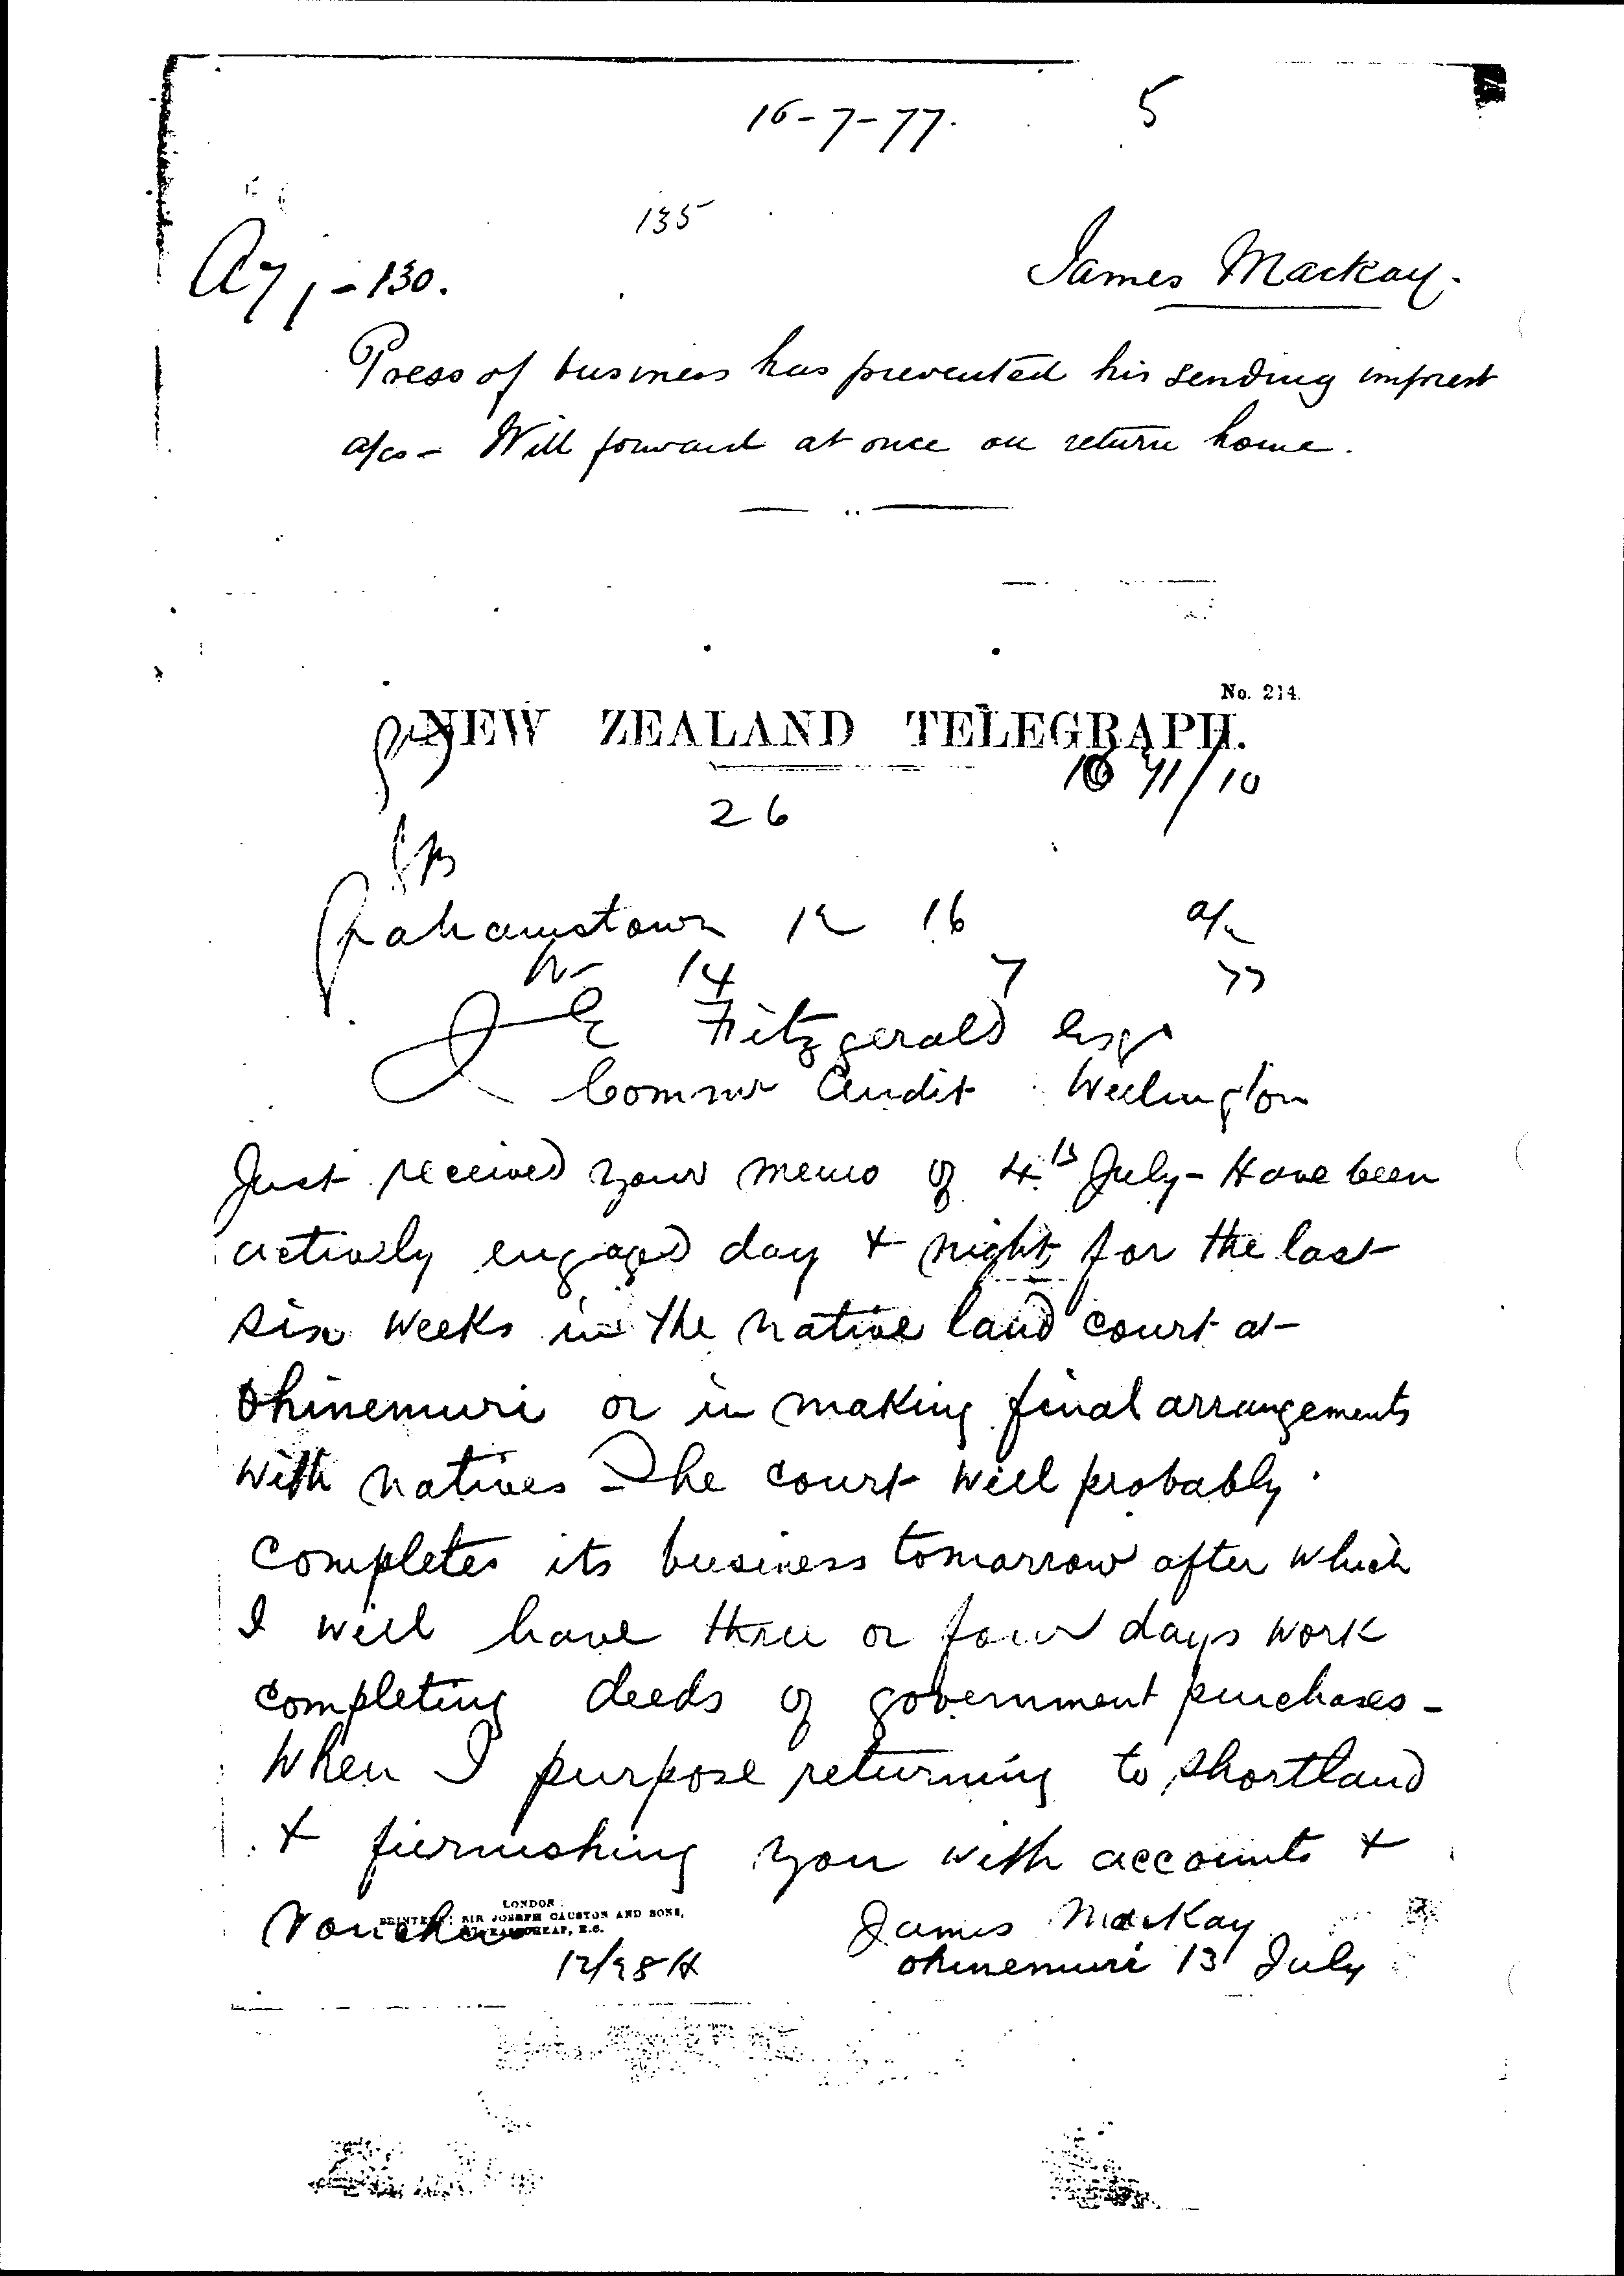 16-7-77. 5
135
130.
James Mackay.
Press of business has prevented his sending imprest
a/cs - Will forward at once on return home.
No. 214.
NEW ZEALAND TELEGRAPH.
/10
26
Grahamstown 16
14 7 77
J E Fitzgerald Esqr
Commr Audit Wellington
Just received your memo of 4th July - Have been
actively engaged day + night for the last
six weeks in the native land court at
Ohinemuri or in making final arrangements
with natives - The court will probably
completes its business tomorrow after which
I will have three or four days work
completing deeds of government purchases -
When I purpose returning to Shortland
+ furnishing you with accounts +
LONDON:
PRINTED: SIR JOSEPH CAUSTON AND SONS,
EASTCHEAP, E.C.
James Mackay
Ohinemuri 13 July